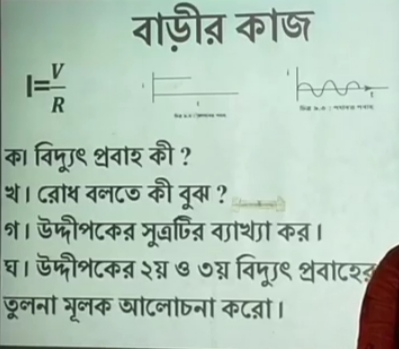 বাড়ীর কাজ
I=V/R
I
t
I
t
ক। বিদ্যুৎ প্রবাহ কী ?
খ। রোধ বলতে কী বুঝ ?
গ। উদ্দীপকের সুত্রটির ব্যাখ্যা কর।
ঘ। উদ্দীপকের ২য় ও ৩য় বিদ্যুৎ প্রবাহের
তুলনা মূলক আলোচনা করো।